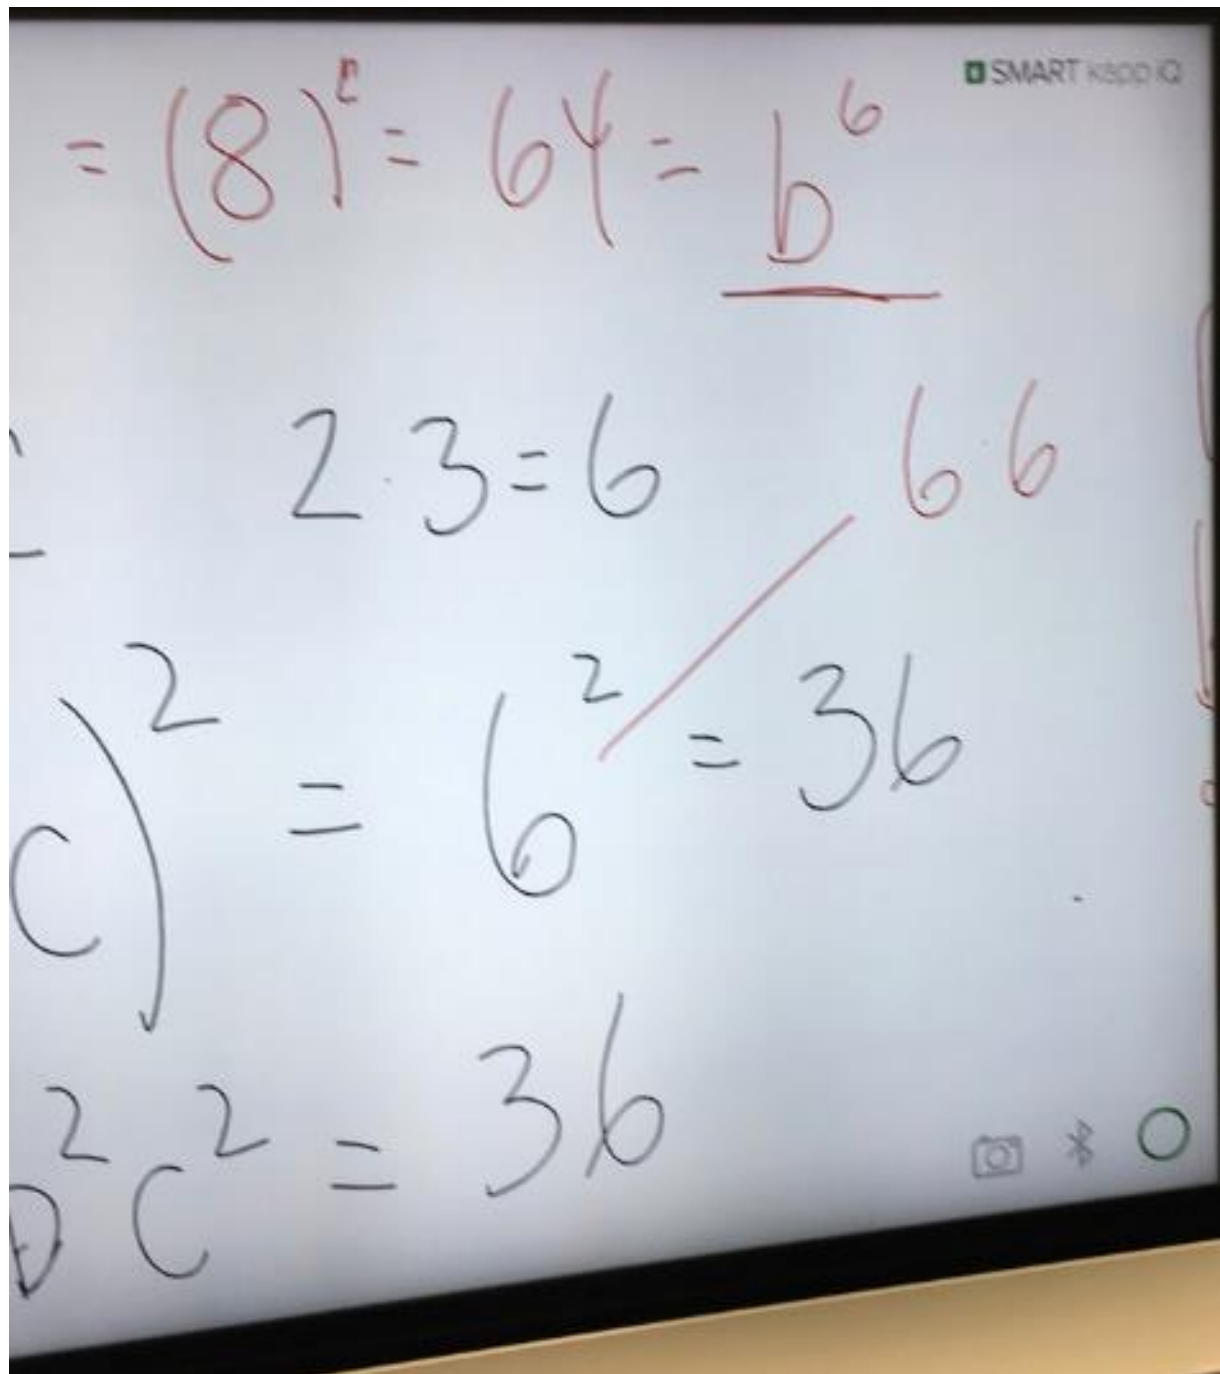 SMART kapp iQ
= (8)² = 64 = b⁶
2·3=6
6·6
)² = 6² = 36
c
b²c² = 36